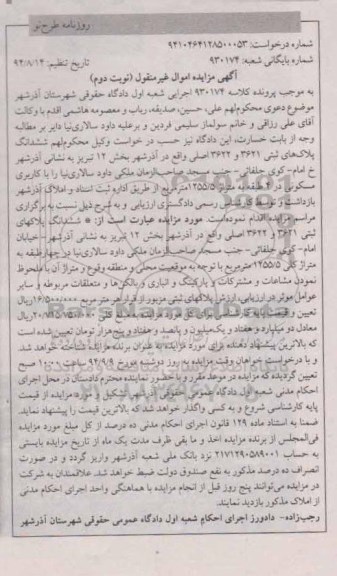 روزنامه طرح‌نو
شماره درخواست: ۹۴۱۰۴۶۴۱۲۸۵۰۰۰۵۳
شماره بایگانی شعبه: ۹۳۰۱۷۴ تاریخ تنظیم: ۹۴/۸/۱۴
آگهی مزایده اموال غیرمنقول (نوبت دوم)
به موجب پرونده کلاسه ۹۳۰۱۷۴ اجرایی شعبه اول دادگاه حقوقی شهرستان آذرشهر
موضوع دعوی محکوم‌لهم علی، حسین، صدیقه، رباب و معصومه هاشمی اقدم با وکالت
آقای علی رزاقی و خانم سولماز سلیمی فردین و برعلیه داود سالاری‌نیا دایر بر مطالبه
وجه از بابت خسارت، این دادگاه نیز حسب در خواست وکیل محکوم‌لهم ششدانگ
پلاک‌های ثبتی ۳۶۲۱ و ۳۶۲۲ اصلی واقع در آذرشهر بخش ۱۲ تبریز به نشانی آذرشهر
خ امام- کوی جلفائی- جنب مسجد صاحب‌الزمان ملکی داود سالاری‌نیا را با کاربری
مسکونی در ۴ طبقه به متراژ ۱۲۵۵/۵ مترمربع از طریق اداره ثبت اسناد و املاک آذرشهر
بازداشت و توسط کارشناس رسمی دادگستری ارزیابی و به شرح ذیل نسبت به برگزاری
مراسم مزایده اقدام نموده‌است. مورد مزایده عبارت است از: * ششدانگ پلاکهای
ثبتی ۳۶۲۱ و ۳۶۲۲ اصلی واقع در آذرشهر بخش ۱۲ تبریز به نشانی آذرشهر- خیابان
امام- کوی جلفائی- جنب مسجد صاحب‌الزمان ملکی داود سالاری‌نیا در چهارطبقه به
متراژ کلی ۱۲۵۵/۵ مترمربع با توجه به موقعیت محلی و منطقه وقوع و متراژ آن با ملحوظ
نمودن مشاعات و مشترکات و پارکینگ و انباری و بالکن‌ها و متعلقات مربوطه و سایر
عوامل موثر در ارزیابی، ارزش پلاکهای ثبتی مزبور از قرار هر متر مربع ۱۶/۵۰۰/۰۰۰ ریال
تعیین و قیمت پایه کارشناسی برای کل مورد مزایده به مبلغ کلی ۲۰/۷۱۵/۷۵۰/۰۰۰ ریال
معادل دو میلیارد و هفتاد و یک‌میلیون و پانصد و هفتاد و پنج‌هزار تومان تعیین‌شده است
که بالاترین پیشنهاد دهنده برای مورد مزایده به عنوان برنده مزایده شناخته خواهد شد.
و با درخواست خواهان وقت مزایده به روز دوشنبه مورخ ۹۴/۹/۹ ساعت ۱۰:۰۰ صبح
تعیین گردیده که مزایده در موعد مقرر و با حضور نماینده محترم دادستان در محل اجرای
احکام مدنی شعبه اول دادگاه عمومی حقوقی آذرشهر تشکیل و مورد مزایده از قیمت
پایه کارشناسی شروع و به کسی واگذار خواهد شد که بالاترین قیمت را پیشنهاد نماید.
ضمنا به استناد ماده ۱۲۹ قانون اجرای احکام مدنی ده درصد از کل مبلغ مورد مزایده
فی‌المجلس از برنده مزایده اخذ و ما بقی ظرف مدت یک ماه از تاریخ مزایده بایستی
به حساب ۲۱۷۱۲۹۰۵۸۹۰۰۱ نزد بانک ملی شعبه آذرشهر واریز گردد و در صورت
انصراف ده درصد مذکور به نفع صندوق دولت ضبط خواهد شد. علاقمندان به شرکت
در مزایده می‌توانند پنج روز قبل از انجام مزایده با هماهنگی واحد اجرای احکام مدنی
از املاک مذکور بازدید نمایند.
رجب‌زاده- دادورز اجرای احکام شعبه اول دادگاه عمومی حقوقی شهرستان آذرشهر